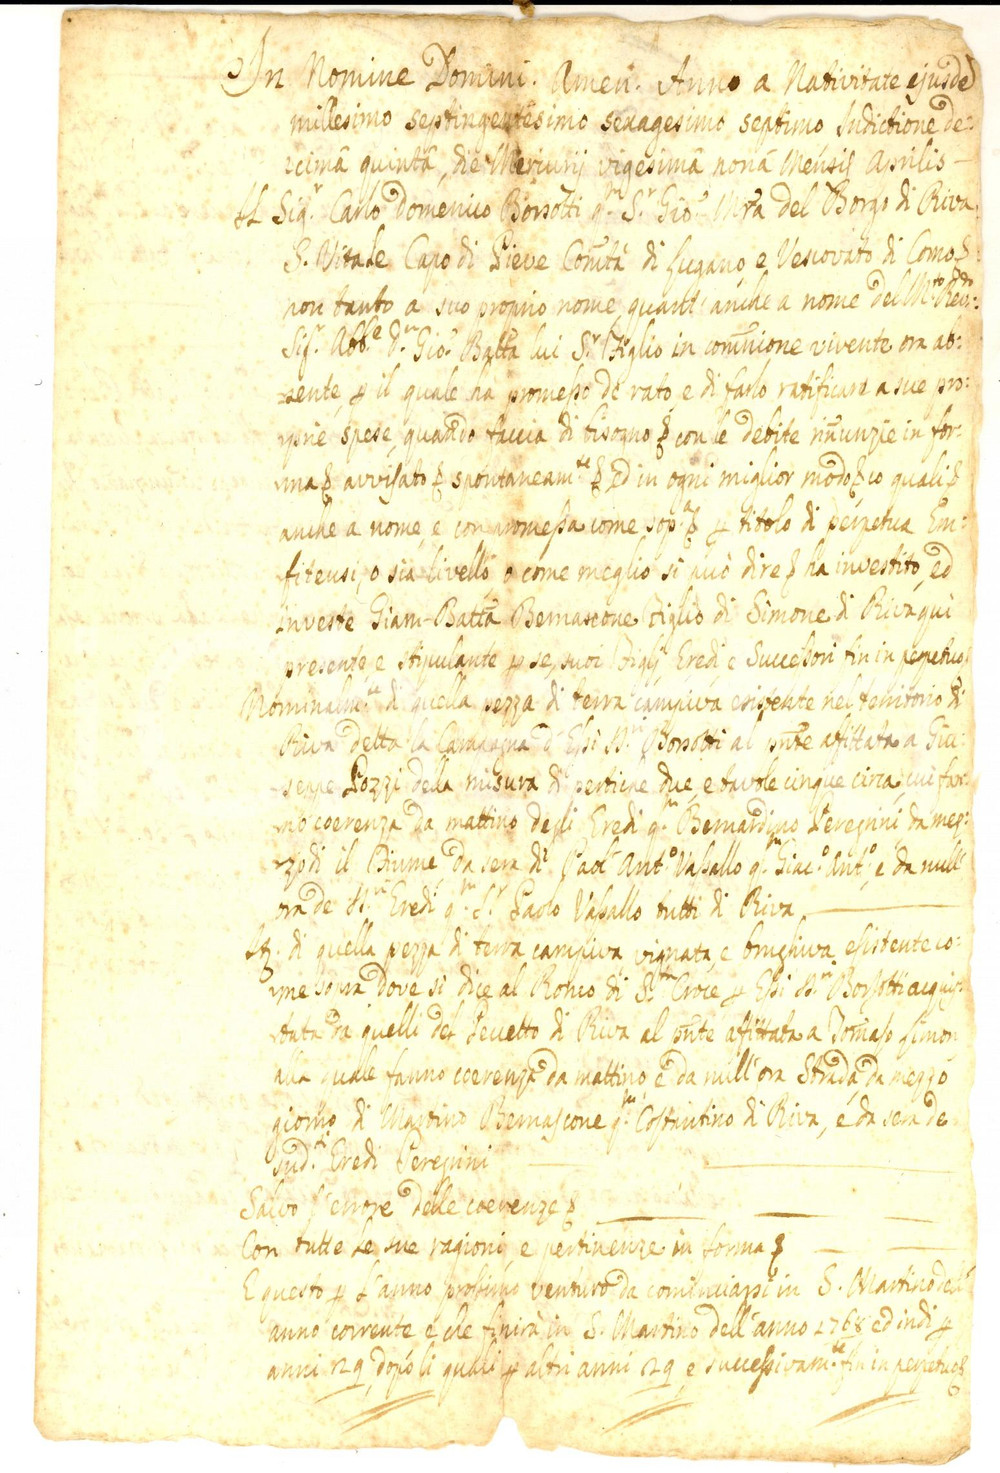 In Nomine Domini. Amen. Anno a Nativitate ejusdē
millesimo septingentesimo sexagesimo septimo Indictione de:
cimā quintā, die Mercurij vigesimā nonā Mensis Aprilis —
Il Sig.r Carlo Domenico Borsotti q.m S.r Gio. Mra del Borgo di Riva
S. Vitale Capo di Pieve Comtà di Lugano, e Vescovato di Como
non tanto a suo proprio nome, quant' anche a nome del M.to Rev:do
Sig.r Abb.e D.n Gio. Batta lui S.r Figlio in comunione vivente ora ab:
sente, p il quale ha promesso de rato, e di farlo ratificare a sue pro:
prie spese, quando faccia di bisogno con le debite rinunzie in for:
ma avvisato spontaneam.te ed in ogni miglior modo co quali
anche a nome, e con promessa come sop.a p titolo di perpetua Em:
fiteusi, o sia livello, o come meglio si può dire ha investito, ed
investe Giam-Batta Bernascone Figlio di Simone di Riva qui
presente, e stipulante p se, suoi Figlj Eredi, e Successori fin in perpetuo
Nominatam.te di quella pezza di terra campiva esistente nel territorio di
Riva detta la Campagna d'Essi SS.ri Borsotti al pnte affittata a Giu:
seppe Pozzi della misura di pertiche due, e tavole cinque circa, cui fan:
no coerenza da mattino degli Eredi q.m Bernardino Peregrini da mez:
zodì il Fiume da sera di Paol' Ant.o Vassallo q.m Giac.o Ant.o, e da null'
ora de SS.ri Eredi q.m S.r Paolo Vassallo tutti di Riva
It. di quella pezza di terra campiva vignata, e brughiva esistente co:
me sovra dove si dice al Ronco di S.ta Croce p Essi SS.ri Borsotti acquis
tata da quelli del Pevetto di Riva al pnte affittata a Tomaso Simon
alla quale fanno coerenza da mattino, e da null'ora Strada, da mezzo
giorno di Martino Bernascone q.m Costantino di Riva, e da sera de
sud.ti Eredi Peregrini
Salvo l'errore delle coerenze
Con tutte le sue ragioni, e pertinenze in forma
E questo p l'anno prossimo venturo da cominciarsi in S. Martino dell'
anno corrente e che finirà in S. Martino dell'anno 1768 ed indi p
anni 29, dopo li quali p altri anni 29 e successivam.te fin in perpetuo